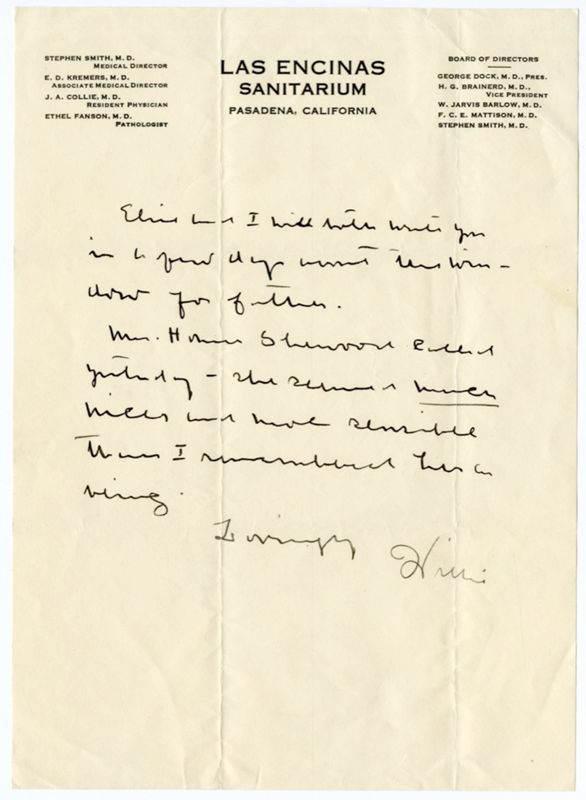 STEPHEN SMITH, M. D.
MEDICAL DIRECTOR
E. D. KREMERS, M. D.
ASSOCIATE MEDICAL DIRECTOR
J. A. COLLIE, M. D.
RESIDENT PHYSICIAN
ETHEL FANSON, M. D.
PATHOLOGIST
LAS ENCINAS
SANITARIUM
PASADENA, CALIFORNIA
BOARD OF DIRECTORS
GEORGE DOCK, M. D., PRES.
H. G. BRAINERD, M. D.,
VICE PRESIDENT
W. JARVIS BARLOW, M. D.
F. C. E. MATTISON, M. D.
STEPHEN SMITH, M. D.
and I will both write you
in a few days about the win-
dow for father.
Mrs. Homer Sherwood called
yesterday - she seemed much
nicer and more sensible
than I remembered her as
being.
Lovingly